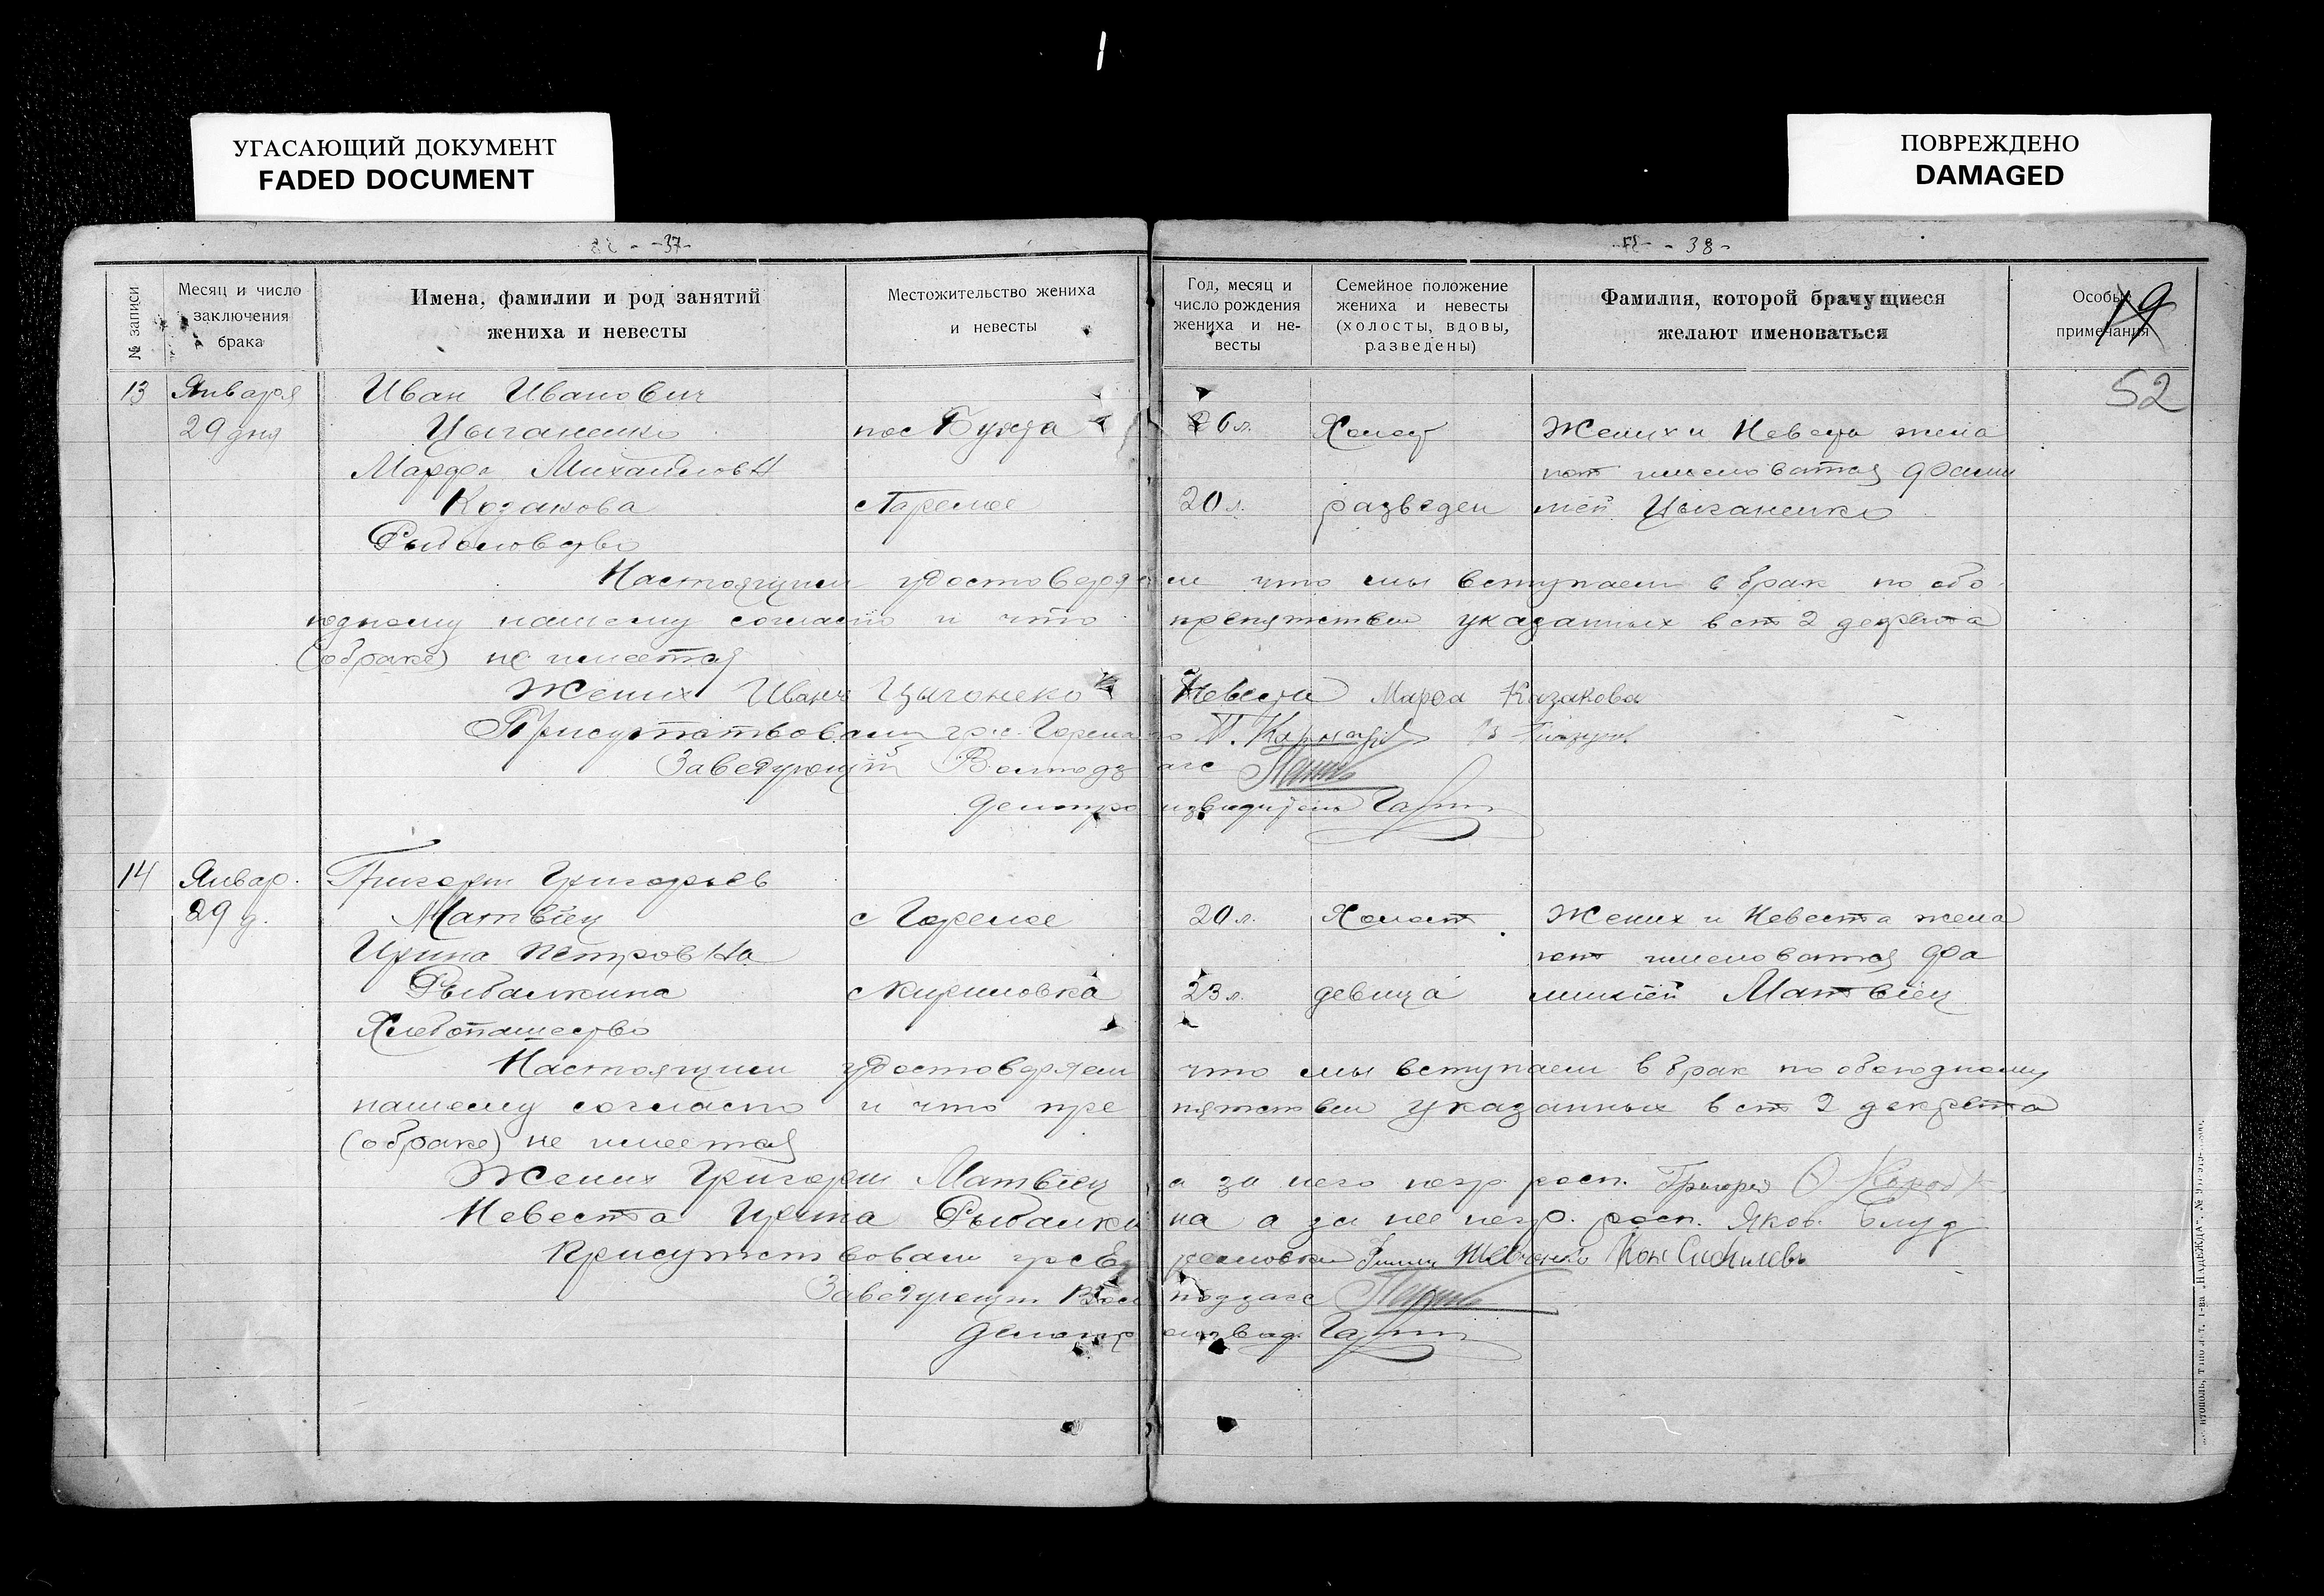 УГАСАЮЩИЙ ДОКУМЕНТ
FADED DOCUMENT
ПОВРЕЖДЕНО
DAMAGED
-37-
- 38 -
№ записи
Месяц и число заключения брака
Имена, фамилии и род занятий жениха и невесты
Местожительство жениха и невесты
Год, месяц и число рождения жениха и невесты
Семейное положение жениха и невесты (холосты, вдовы, разведены)
Фамилия, которой брачущиеся желают именоваться
Особые примечания
19
52
13 Января Иван Иванович
29 дня Цыганенко пос Бугза 26 л. Холост Жених и Невеста жела
Марфа Михайловн ют именоватся фами
Козакова с Горелое 20 л. разведен лией Цыганенко
Рыболовство
Настоящим удостоверяем что мы вступаем в брак по обо
юдному нашему согласию и что препятствий указанных в ст 2 декрета
(о браке) не имеется
Жених Иван Цыгонеко Невеста Марфа Казакова
Присутствовали гр. с. Горелаго
Заведующий Волподзагс
делопроизводитель
14 Январ. Григорий Григорьев
29 д. Матвіец с Горелое 20 л. Холост Жених и Невеста жела
Ирина Петровна ют именоватся фа
Рыбалкина с Кириловка 23 л. девица милией Матвіец
Хлебопашество
Настоящим удостоверяем что мы вступаем в брак по обоюдному
нашему согласию и что препятствий указанных в ст 2 декрета
(о браке) не имеется
Жених Григорий Матвіец а за него негр. росп. Григорий
Невеста Ирина Рыбалкина а за нее негр. росп. Яков.
Присутствовали гр с Шевченко
Заведующий Волподзагс
делопроизвод.